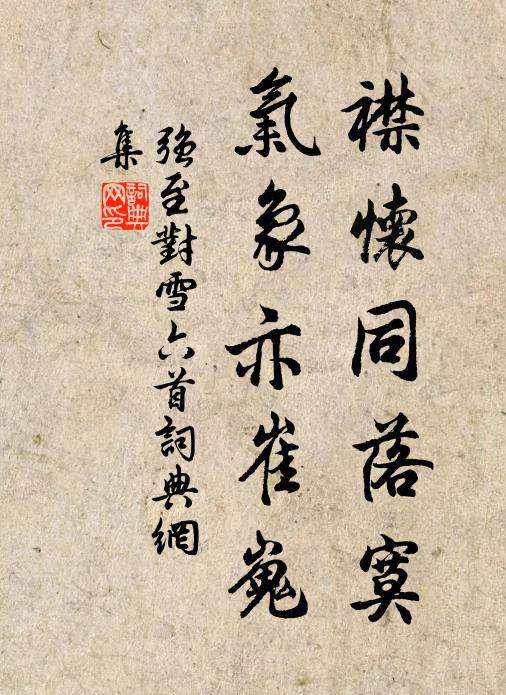 襟懷同落寞
氣象亦崔嵬
強至對雪六首詞典網
集
詞典網印